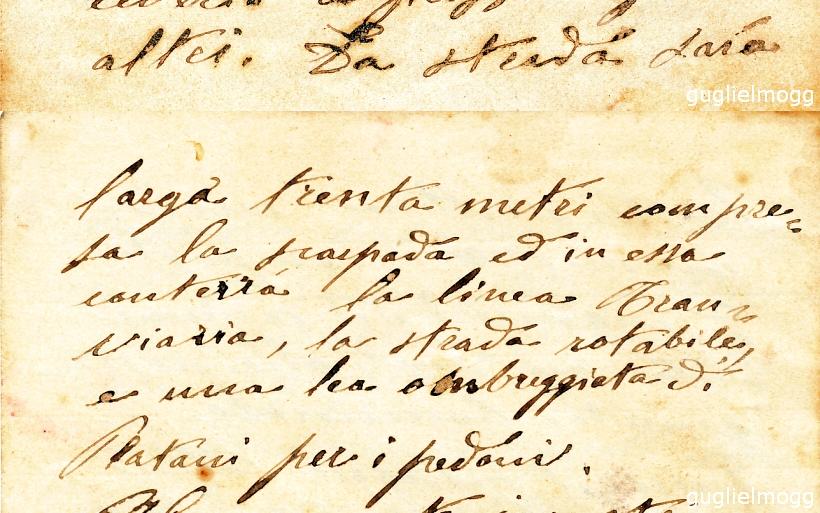 altri. La strada sarà
guglielmogg
larga trenta metri compre=
sa la scarpada ed in essa
conterrà la linea Tran=
viaria, la strada rotabile,
e una lea ombreggiata di
Platani per i pedoni.
guglielmogg